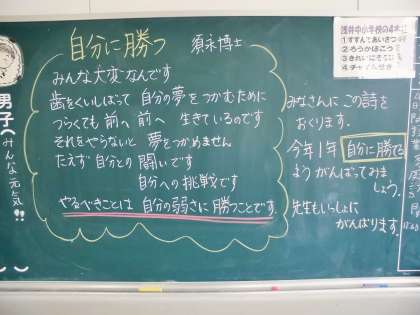 自分に勝つ 須永博士
みんな大変なんです
歯をくいしばって 自分の夢をつかむために
つらくても 前へ 前へ 生きているのです
それをやらないと 夢をつかめません
たえず 自分との 闘いです
自分への 挑戦です
やるべきことは 自分の弱さに 勝つことです。
みなさんに この詩を
おくります。
今年1年 自分に勝てる
よう がんばってみま
しょう。
先生もいっしょに
がんばります。
男子へ みんな元気!!
浅井中小学校の4本柱
1 すすんであいさつ
2 ろうかはこう
3 きれいにそうじ
4 チャイム